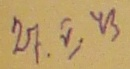 27. V. 43